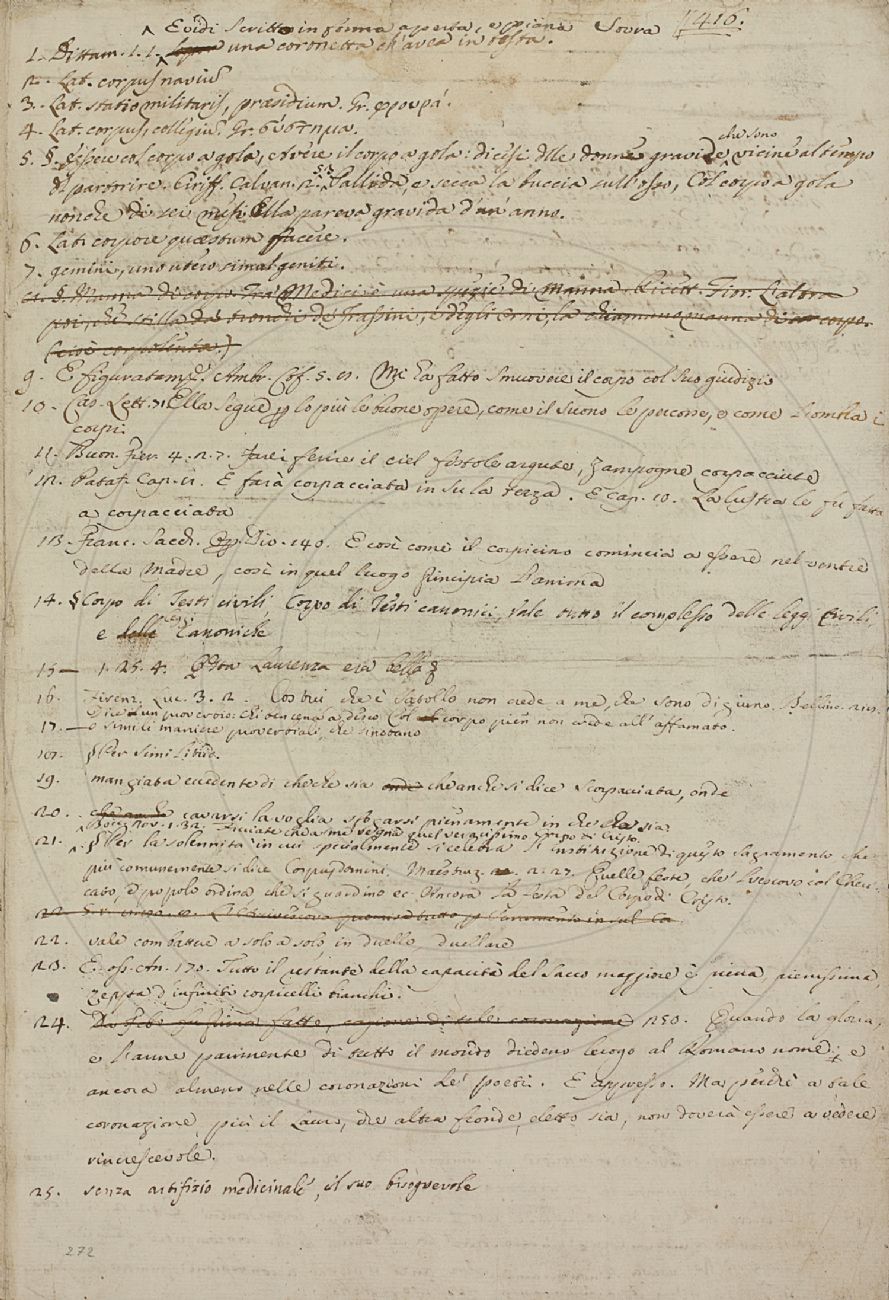 Evidi scritto in forma aperta, e piana Sovra 1416.
1. Dittam. 1. 1. una coronetta ch'avea in testa.
2. Lat. corpus navium
3. Lat. statio militaris, præsidium. Gr. φρουρά.
4. Lat. corpus, collegium. Gr. σύστημα.
5. §. Essere col corpo a gola, e Avere il corpo a gola: dicesi delle donne gravide, che sono vicine al tempo
di partorire. Ciriff. Calvan. 2. 53. Pallida, e secca la buccia sull'osso, Col corpo a gola
nonchè di sei mesi Ella pareva gravida d'un anno.
6. Lat. corpore quæstum facere.
7. gemini, uno utero simul geniti.
§. Manna di corpo Tra' Medici è una spezie di manna. Ricett. Fior. L'altra
poi, che stilla da' tronchi de' Frassini, e degli Orni, la chiamano manna di corpo.
(cioè corpolenta.)
9. E figuratam. Ambr. Cof. 5. 11. M'ha fatto smuovere il corpo col suo giudizio
10. Cas. Lett. 71. Ella segue per lo più le buone opere, come il suono le percosse, e come l'ombra i
corpi.
11. Buon. Fier. 4. 2. 7. Farei ferire il ciel fistole argute, Zampogne corpacciute
12. Pataff. Cap. 11. E farà corpacciata in su la terza. E Cap. 10. La lustra le fu fatta
a corpacciata
13. Franc. Sacch. Op. Div. 140. E così come il corpicino comincia a essere nel ventre
della Madre, così in quel luogo principia l'anima
14. § Corpo di Testi civili, Corpo di Testi canonici, vale tutto il complesso delle leggi Civili,
e Canoniche
15 — 1. 25. 4. Laurenza era bella
16. Firenz. Luc. 3. 2. Costui che è satollo non crede a me, che sono digiuno.
Dice un proverbio: chi ben cena a desco Col corpo pien non crede all'affamato.
17. — e simili maniere proverbiali, che sinotano
18. § Per Similitud.
19. mangiata eccedente di chechè sia che anche si dice Scorpacciata, onde
20. cavarsi la voglia sfogarsi pienamente in che che sia
Bocc. Nov. 1. 32. Facciate che a me vegna quel veracissimo corpo di Cristo.
21. § Per la solennità in cui spezialmente si celebra l'instituzione di questo Sagramento, che
più comunemente si dice Corpusdomini. Maestruz. 2. 27. Quelle feste che 'l Vescovo col Cheri-
cato, e popolo ordina che si guardino ec. Ancora la festa del Corpo di Cristo.
22. vale combattere a solo a solo in duello, duellare
23. E oss. An. 170. Tutto il restante della capacità del Sacco maggiore è piena, pienissima,
zeppa d'infiniti corpicelli bianchi.
24. 250. Quando la gloria,
e l'arme parimente di tutto il mondo diedero luogo al Romano nome; e
ancora almeno nelle coronazioni de' poeti. E appresso. Ma perchè a tale
coronazione più il Lauro, che altra fronde, eletto sia, non doverà essere a vedere
rincrescevole.
25. senza artifizio medicinale, il suo bisognevole
272